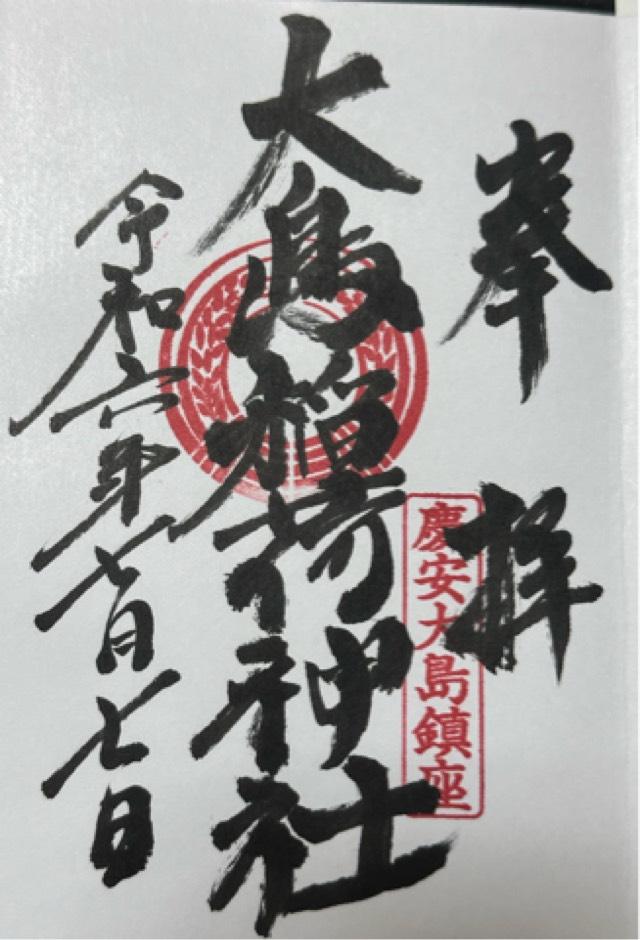 奉拝
慶安大島鎮座
大島稲荷神社
令和六年七月七日